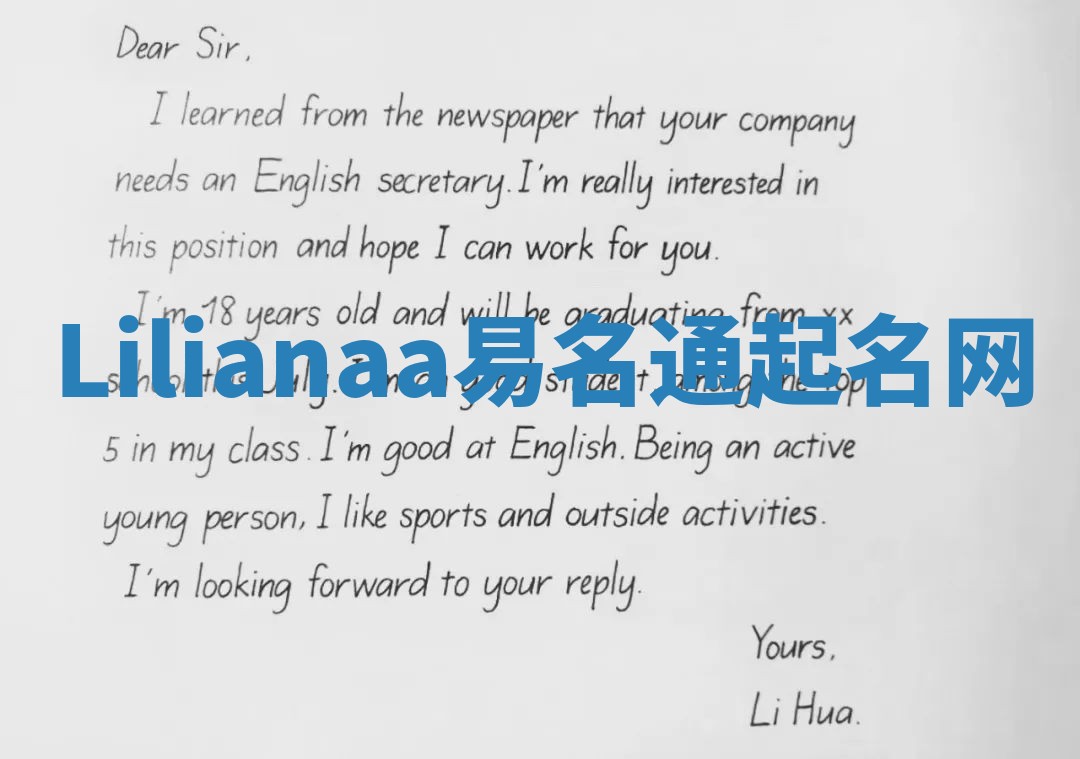 Dear Sir,
I learned from the newspaper that your company
needs an English secretary. I'm really interested in
this position and hope I can work for you.
I'm 18 years old and will be graduating from xx
Lilianaa易名通起名网
school this July. I'm a good student, among the top
5 in my class. I'm good at English. Being an active
young person, I like sports and outside activities.
I'm looking forward to your reply.
Yours,
Li Hua.